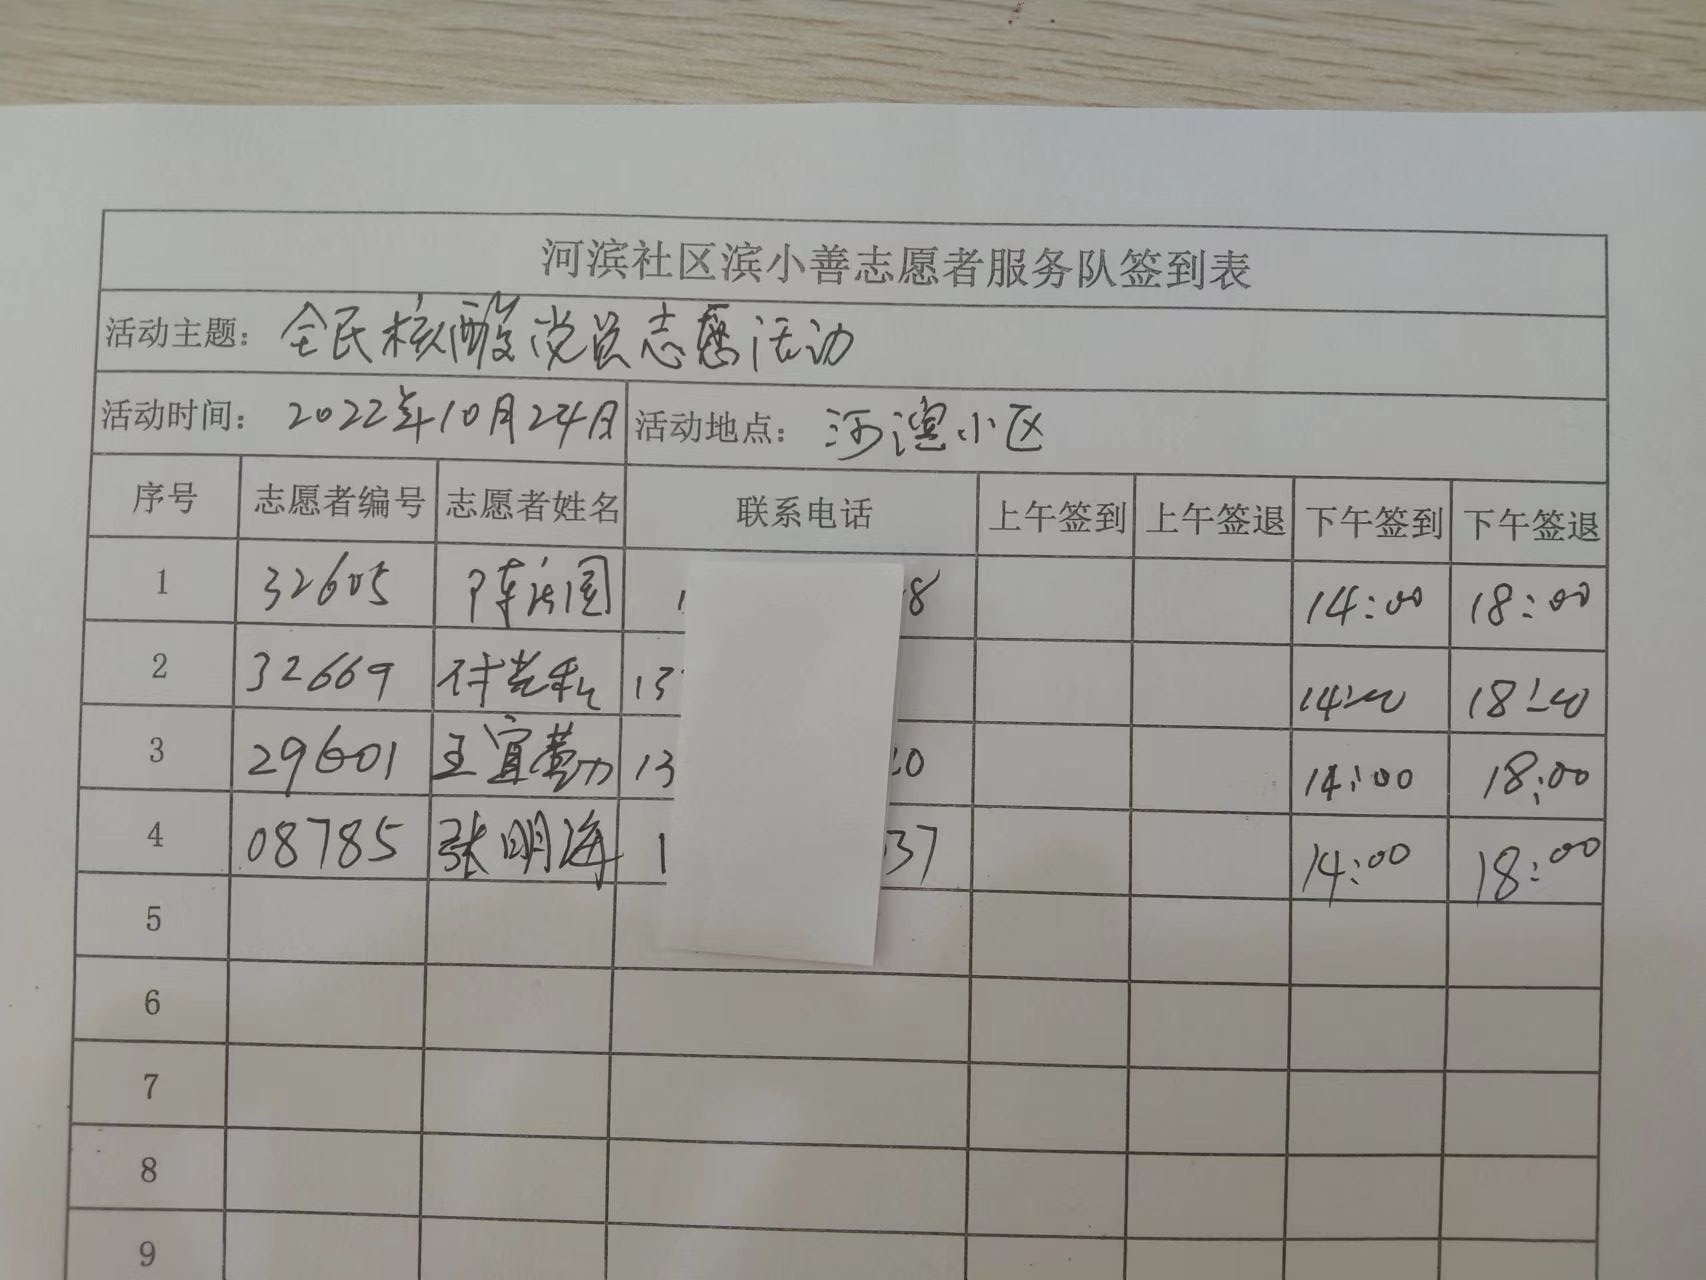 河滨社区滨小善志愿者服务队签到表
活动主题：全民核酸党员志愿活动
活动时间：2022年10月24日 活动地点：河滨小区
序号 志愿者编号 志愿者姓名 联系电话 上午签到 上午签退 下午签到 下午签退
1 32605 1 8 14:00 18:00
2 32669 13 14:00 18:00
3 29601 王宜勤 13 0 14:00 18:00
4 08785 张明海 1 37 14:00 18:00
5
6
7
8
9